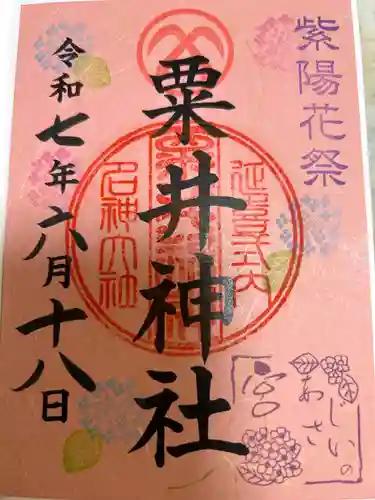 紫陽花祭
粟井神社
延喜式内
名神大社
令和七年六月十八日
あじさいの宮